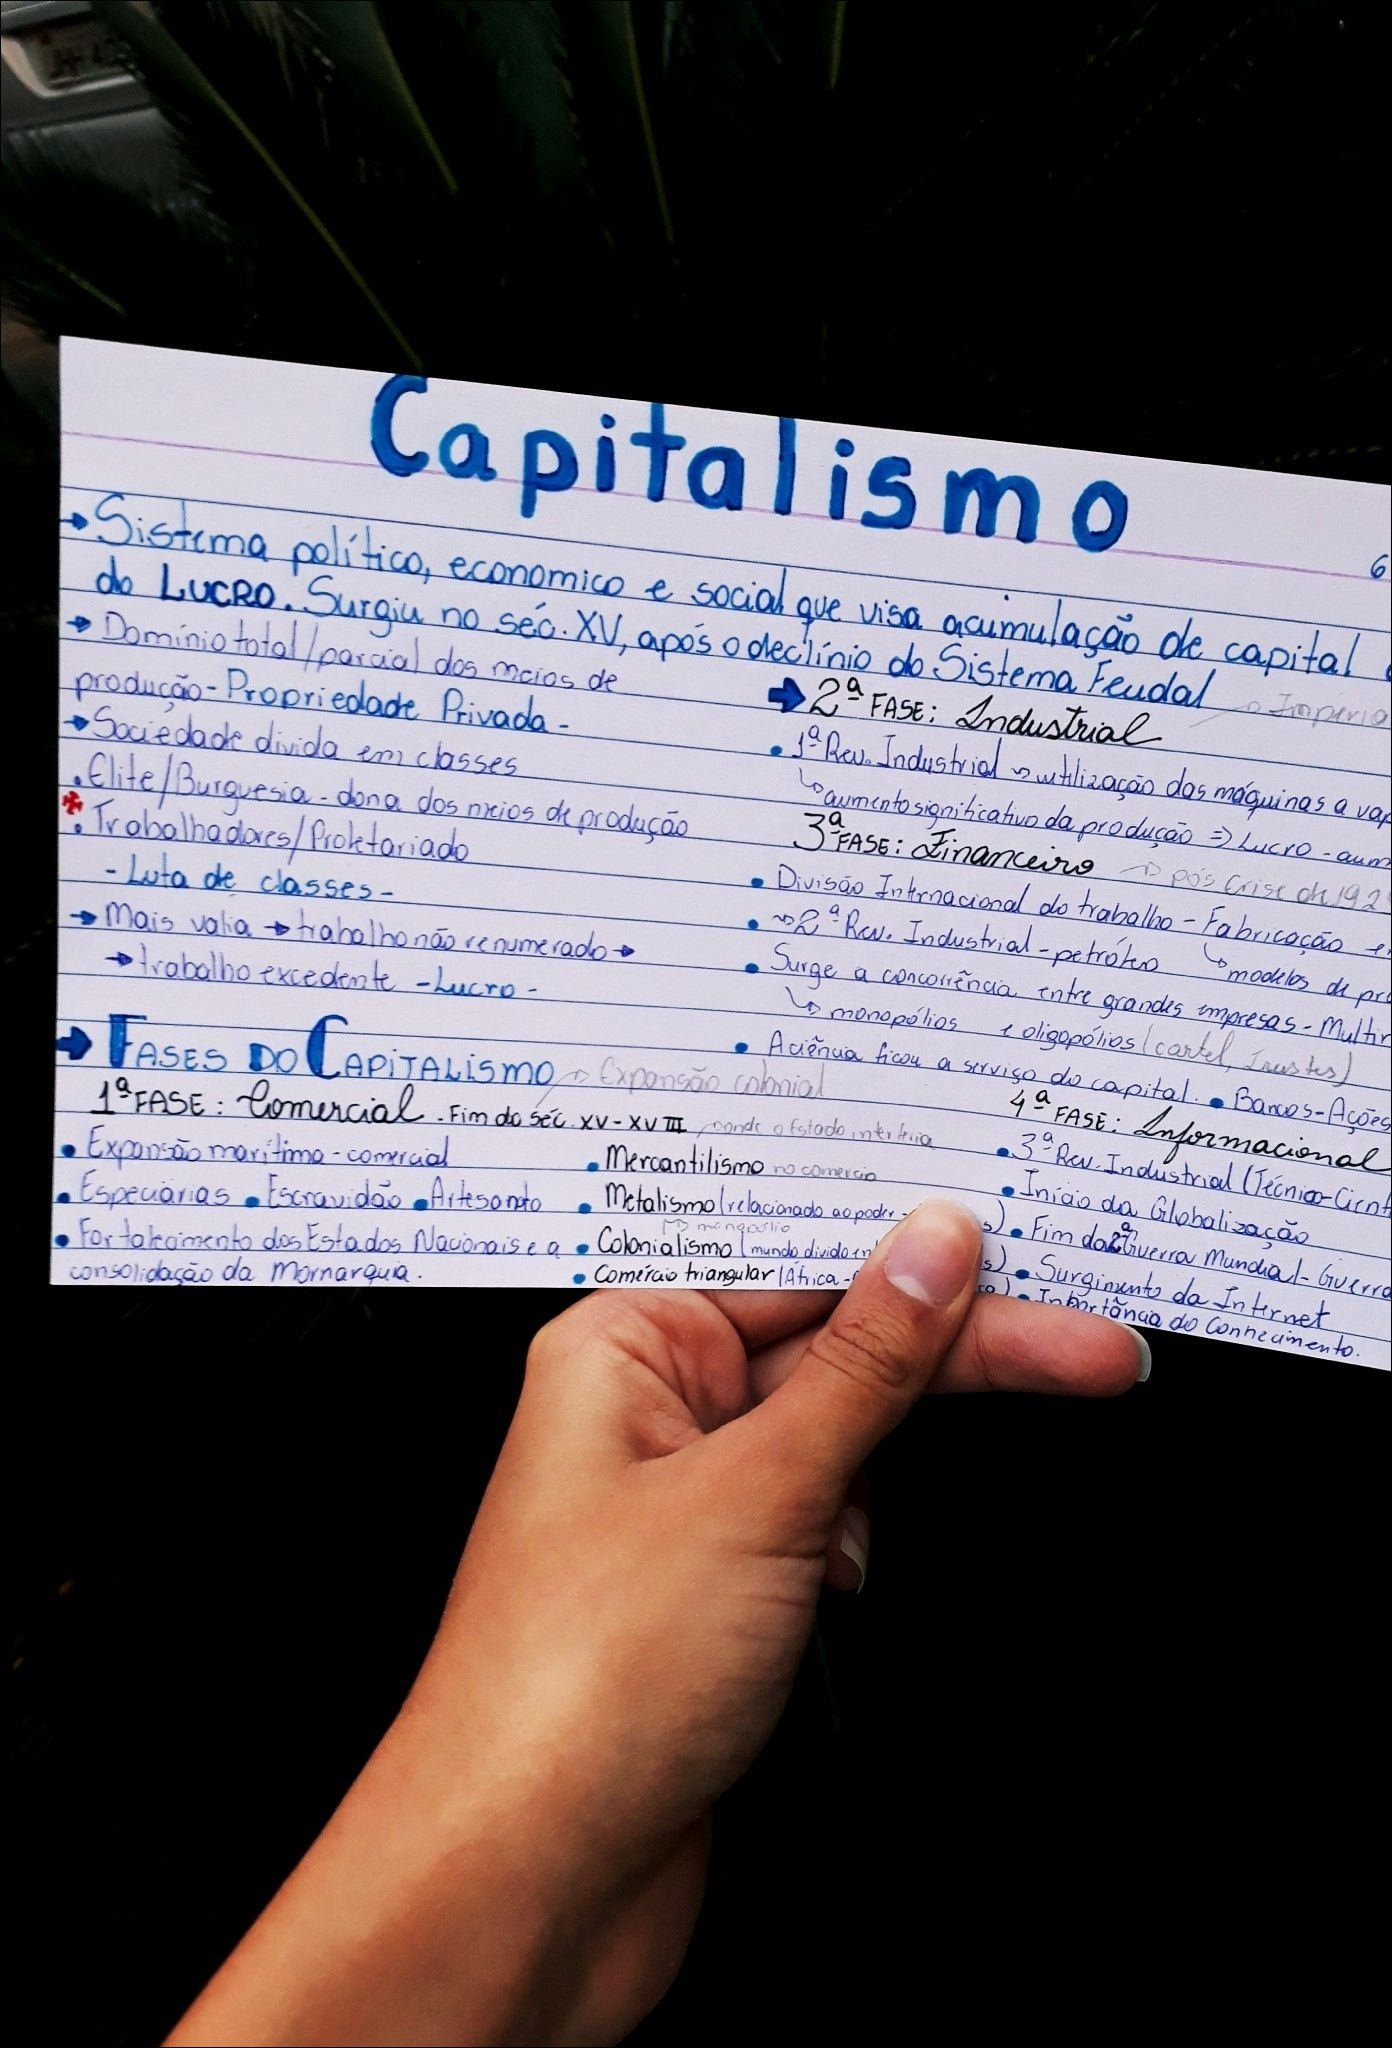 Capitalismo
→ Sistema político, economico e social que visa acumulação de capital
do LUCRO. Surgiu no séc. XV, após o declínio do Sistema Feudal
→ Domínio total/parcial dos meios de
produção - Propriedade Privada -
→ Sociedade divida em classes
. Elite/Burguesia - dona dos meios de produção
. Trabalhadores/Proletariado
- Luta de classes -
→ Mais valia → trabalho não renumerado →
→ trabalho excedente - Lucro -
→ FASES DO CAPITALISMO → Expansão colonial
1ª FASE: Comercial . Fim do séc. XV - XVIII onde o Estado interferia
• Expansão marítima - comercial
• Especiarias • Escravidão • Artesanato
• Fortalecimento dos Estados Nacionais e a
consolidação da Mornarquia.
• Mercantilismo no comercio
• Metalismo (relacionado ao poder -
↳ monopólio
• Colonialismo (mundo divido
• Comércio triangular (África -
→ 2ª FASE: Industrial
• 1ª Rev. Industrial → utilização das máquinas a
↳ aumento significativo da produção ⇒ Lucro -
3ª FASE: Financeiro → pós Crise de
• Divisão Internacional do trabalho - Fabricação
• → 2ª Rev. Industrial - petróleo ↳ modelos de
• Surge a concorrência entre grandes empresas -
↳ monopólios e oligopólios (cartel, Trustes)
• A ciência ficou a serviço do capital. • Bancos - Ações
4ª FASE: Informacional
• 3ª Rev. Industrial
• Início da Globalização
• Fim da 2ª Guerra Mundial -
• Surgimento da Internet
• Importância do Conhecimento.